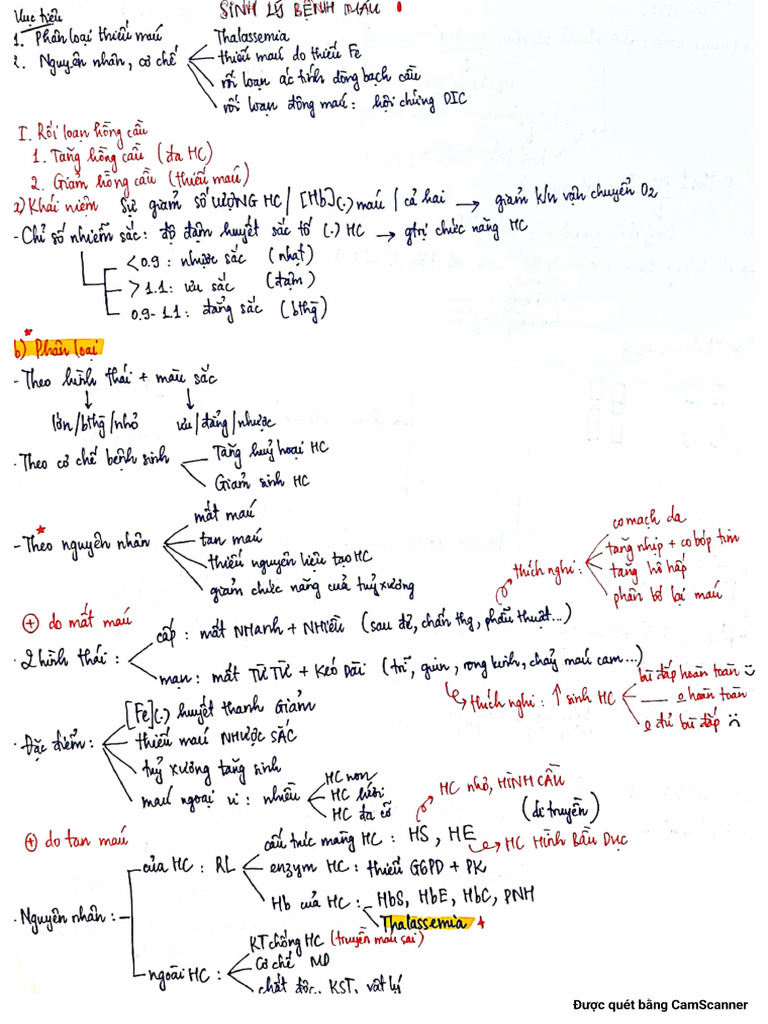 SINH LÝ BỆNH MÁU 1
Mục tiêu
1. Phân loại thiếu máu
2. Nguyên nhân, cơ chế
Thalassemia
thiếu máu do thiếu Fe
rối loạn ác tính dòng bạch cầu
rối loạn đông máu: hội chứng DIC
I. Rối loạn hồng cầu
1. Tăng hồng cầu (đa HC)
2. Giảm hồng cầu (thiếu máu)
a) Khái niệm Sự giảm số LƯỢNG HC / [Hb](.) máu / cả hai → giảm k/n vận chuyển O2
- Chỉ số nhiễm sắc: độ đậm huyết sắc tố (.) HC → gtrị chức năng HC
< 0.9: nhược sắc (nhạt)
> 1.1: ưu sắc (đậm)
0.9-1.1: đẳng sắc (bthg)
* b) Phân loại
- Theo hình thái + màu sắc
↓ ↓
lớn/bthg/nhỏ ưu/đẳng/nhược
- Theo cơ chế bệnh sinh
Tăng huỷ hoại HC
Giảm sinh HC
* - Theo nguyên nhân
mất máu
tan máu
thiếu nguyên liệu tạo HC
giảm chức năng của tuỷ xương
thích nghi:
co mạch da
tăng nhịp + co bóp tim
tăng hô hấp
phân bố lại máu
⊕ do mất máu
· 2 hình thái:
cấp: mất NHanh + NHiều (sau đẻ, chấn thg, phẫu thuật...)
mạn: mất TỪ TỪ + Kéo Dài (trĩ, giun, rong kinh, chảy máu cam...)
thích nghi: ↑ sinh HC
bù đắp hoàn toàn
__ o hoàn toàn
o đủ bù đắp
· Đặc điểm:
[Fe](.) huyết thanh Giảm
thiếu máu NHƯỢC SẮC
tuỷ xương tăng sinh
máu ngoại vi: nhiều
HC non
HC lưới
HC đa cỡ
⊕ do tan máu
· Nguyên nhân:
của HC: RL
cấu trúc màng HC: HS, HE (di truyền)
HC nhỏ, HÌNH CẦU
HC HÌNH BẦU DỤC
enzym HC: thiếu G6PD + PK
Hb của HC:
HbS, HbE, HbC, PNH
Thalassemia *
ngoài HC:
KT chống HC (truyền máu sai)
Cơ chế MD
chất độc, KST, vật lý
Được quét bằng CamScanner